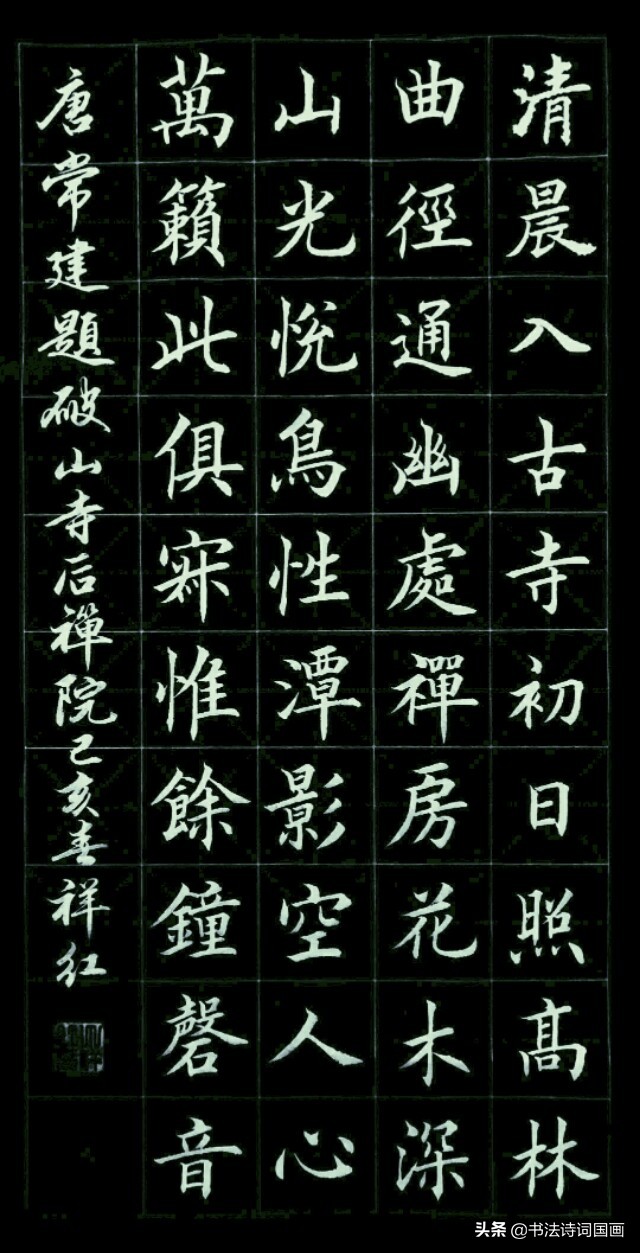 清晨入古寺初日照高林
曲徑通幽處禪房花木深
山光悅鳥性潭影空人心
萬籟此俱寂惟餘鐘磬音
唐常建題破山寺后禪院己亥春祥红
头条 @书法诗词国画